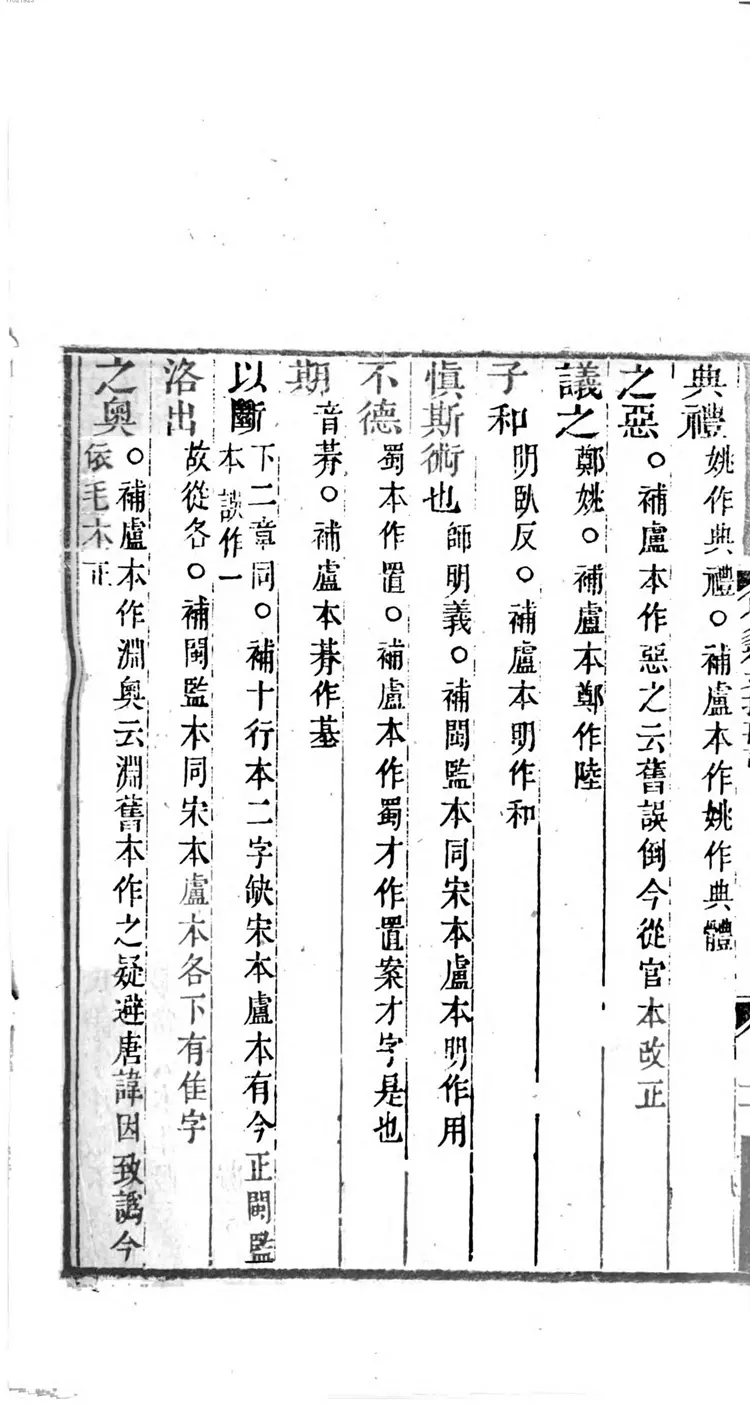 典禮姚作典禮○補盧本作姚作典體
之惡○補盧本作惡之云舊誤倒今從官本改正
議之鄭姚○補盧本鄭作陸
子和明臥反○補盧本明作和
愼斯術也師明義○補閩監本同宋本盧本明作用
不德蜀本作置○補盧本作蜀才作置案才字是也
期音朞○補盧本朞作基
以斷下二章同○補十行本二字缺宋本盧本有今正閩監
本誤作一
洛出故從各○補閩監本同宋本盧本各下有隹字
之奥○補盧本作淵奥云淵舊本作之疑避唐諱因致譌今
依毛本正